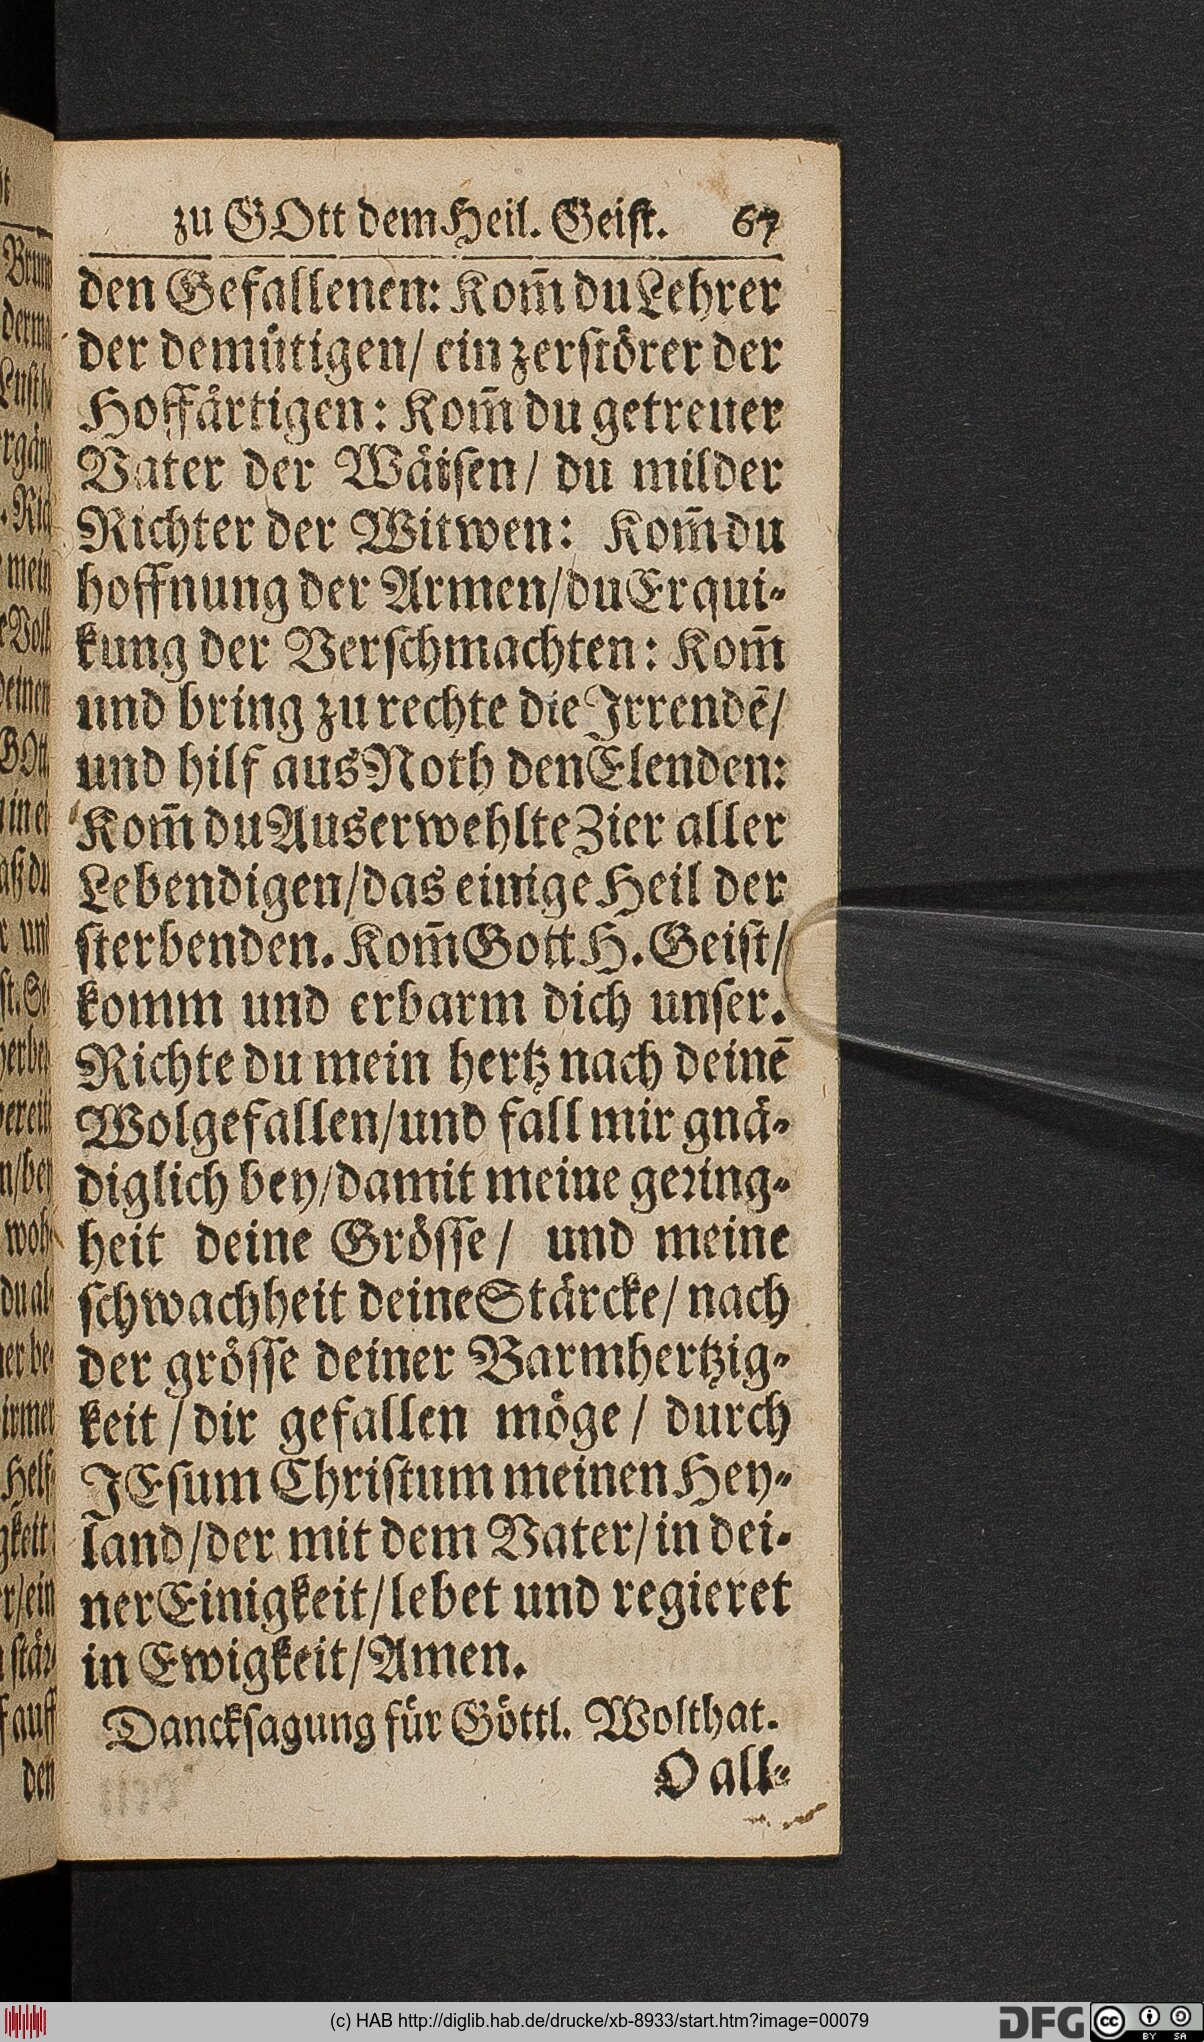 zu GOtt dem Heil. Geist. 67
den Gefallenen: Kom̃ du Lehrer
der demütigen/ ein zerstörer der
Hoffärtigen: Kom̃ du getreuer
Vater der Wäisen/ du milder
Richter der Witwen: Kom̃ du
hoffnung der Armen/ du Erqui-
kung der Verschmachten: Kom̃
und bring zu rechte die Irrendẽ/
und hilf aus Noth den Elenden:
Kom̃ du Auserwehlte Zier aller
Lebendigen/ das einige Heil der
sterbenden. Kom̃ Gott H. Geist/
komm und erbarm dich unser.
Richte du mein hertz nach deinẽ
Wolgefallen/ und fall mir gnä-
diglich bey/ damit meine gering-
heit deine Grösse/ und meine
schwachheit deine Stärcke/ nach
der grösse deiner Barmhertzig-
keit/ dir gefallen möge/ durch
JEsum Christum meinen Hey-
land/ der mit dem Vater/ in dei-
ner Einigkeit/ lebet und regieret
in Ewigkeit/ Amen.
Dancksagung für Göttl. Wolthat.
O all-
(c) HAB http://diglib.hab.de/drucke/xb-8933/start.htm?image=00079
DFG
cc BY SA